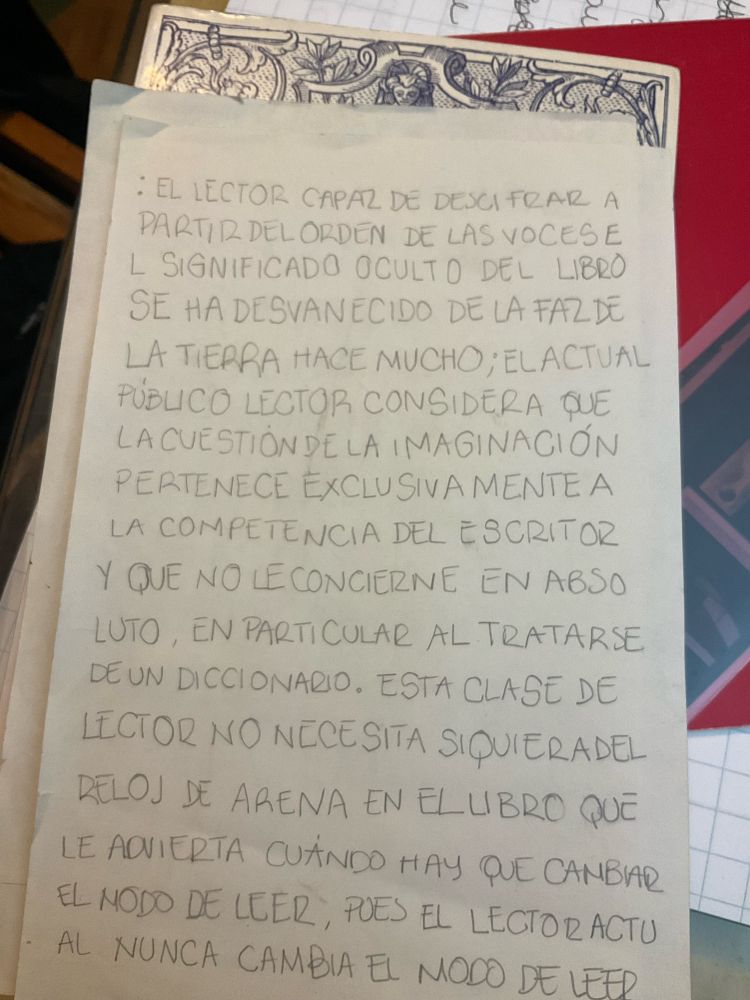 : EL LECTOR CAPAZ DE DESCIFRAR A
PARTIR DEL ORDEN DE LAS VOCES E
L SIGNIFICADO OCULTO DEL LIBRO
SE HA DESVANECIDO DE LA FAZ DE
LA TIERRA HACE MUCHO; EL ACTUAL
PÚBLICO LECTOR CONSIDERA QUE
LA CUESTIÓN DE LA IMAGINACIÓN
PERTENECE EXCLUSIVAMENTE A
LA COMPETENCIA DEL ESCRITOR
Y QUE NO LE CONCIERNE EN ABSO
LUTO, EN PARTICULAR AL TRATARSE
DE UN DICCIONARIO. ESTA CLASE DE
LECTOR NO NECESITA SIQUIERA DEL
RELOJ DE ARENA EN EL LIBRO QUE
LE ADVIERTA CUÁNDO HAY QUE CAMBIAR
EL MODO DE LEER, PUES EL LECTOR ACTU
AL NUNCA CAMBIA EL MODO DE LEER